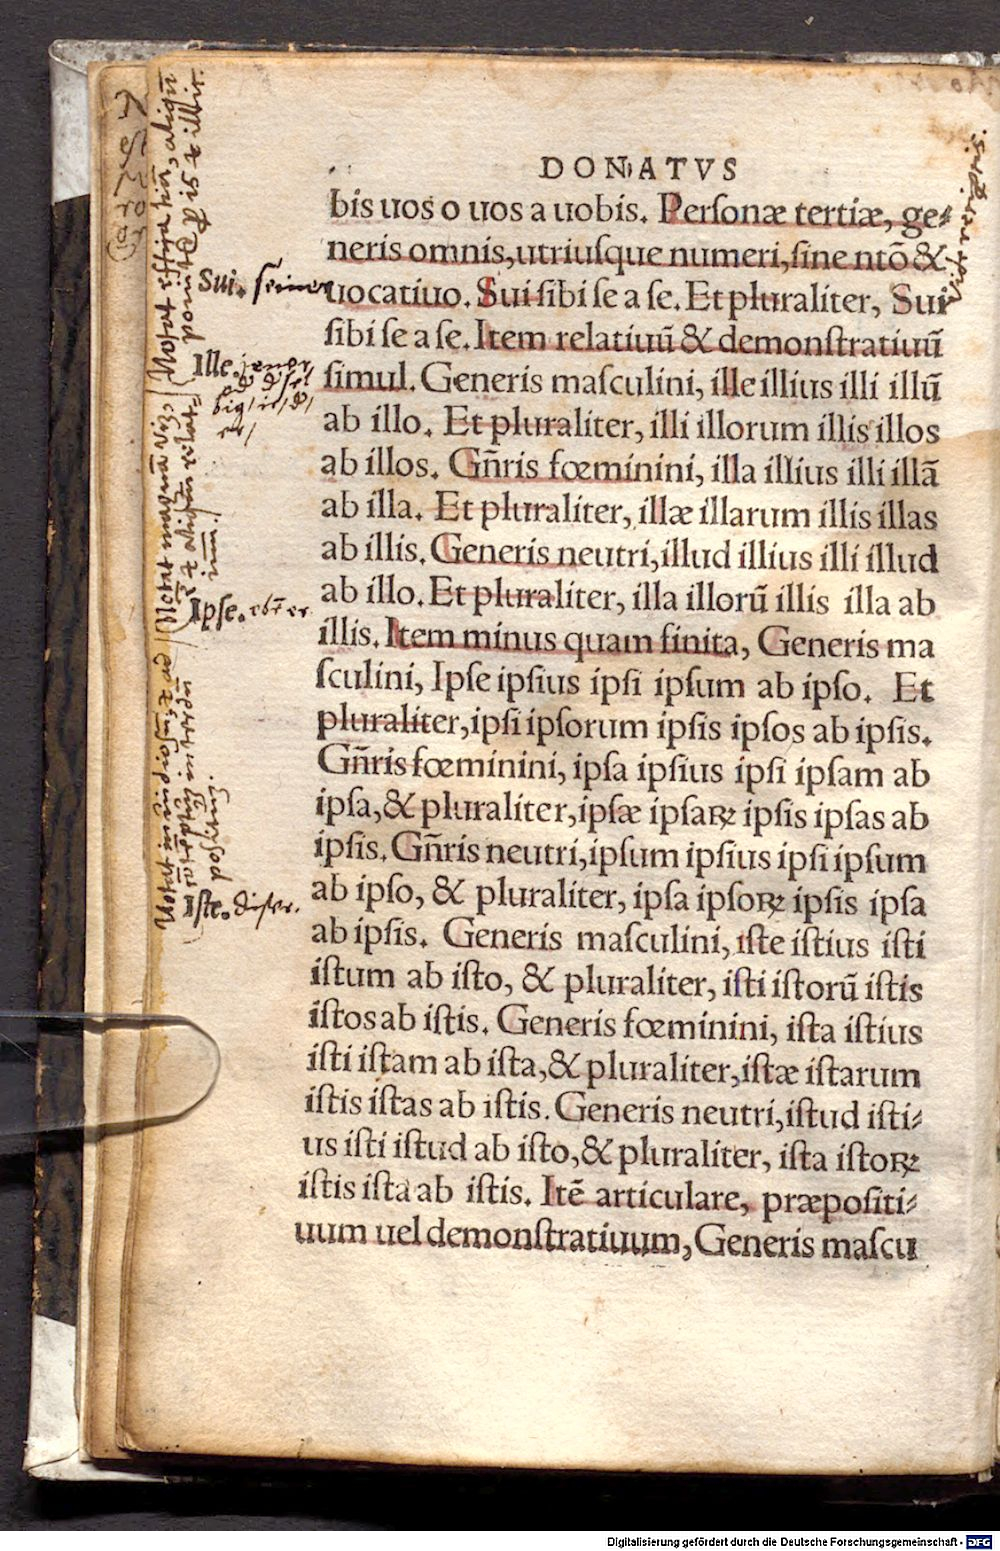 DONATVS
bis uos o uos a uobis. Personæ tertiæ, ge⸗
neris omnis,utriusque numeri,sine ntõ &
Sui.
uocatiuo. Sui sibi se a se. Et pluraliter, Sui
sibi se a se. Item relatiuũ & demonstratiuũ
Ille.
simul. Generis masculini, ille illius illi illũ
ab illo. Et pluraliter, illi illorum illis illos
ab illos. Gñris fœminini, illa illius illi illã
ab illa. Et pluraliter, illæ illarum illis illas
ab illis. Generis neutri,illud illius illi illud
ab illo. Et pluraliter, illa illorũ illis illa ab
Ipse.
illis. Item minus quam finita, Generis ma
sculini, Ipse ipsius ipsi ipsum ab ipso. Et
pluraliter,ipsi ipsorum ipsis ipsos ab ipsis.
Gñris fœminini, ipsa ipsius ipsi ipsam ab
ipsa,& pluraliter,ipsæ ipsaꝝ ipsis ipsas ab
ipsis. Gñris neutri,ipsum ipsius ipsi ipsum
Iste.
ab ipso, & pluraliter, ipsa ipsoꝝ ipsis ipsa
ab ipsis. Generis masculini, iste istius isti
istum ab isto, & pluraliter, isti istorũ istis
istos ab istis. Generis fœminini, ista istius
isti istam ab ista,& pluraliter,istæ istarum
istis istas ab istis. Generis neutri,istud isti⸗
us isti istud ab isto,& pluraliter, ista istoꝝ
istis ista ab istis. Itẽ articulare, præpositi⸗
uum uel demonstratiuum, Generis mascu
Digitalisierung gefördert durch die Deutsche Forschungsgemeinschaft - DFG